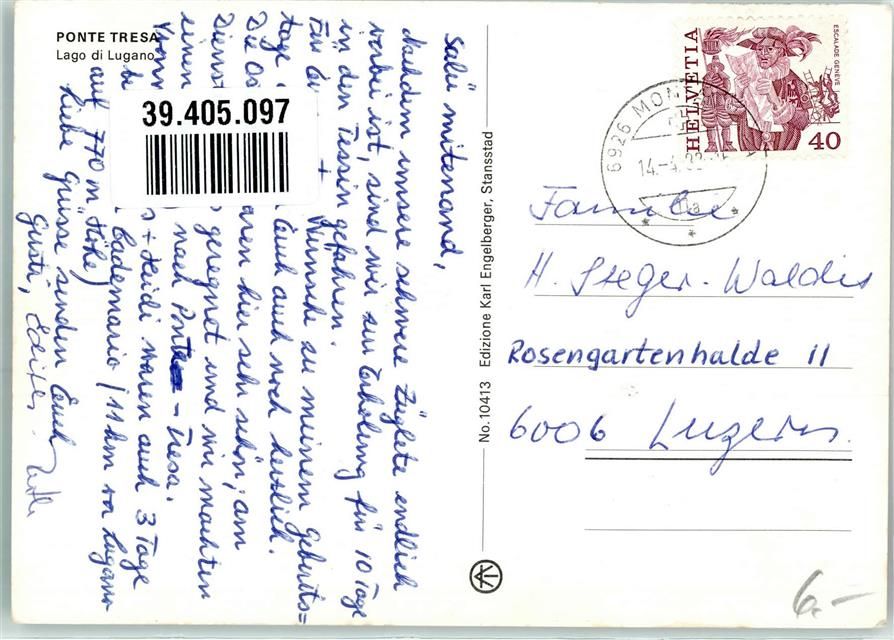 PONTE TRESA
Lago di Lugano
39.405.097
Salü mitenand,
Nachdem unsere schwere Züglete endlich
vorbei ist, sind wir zur Erholung für 10 Tage
in den Tessin gefahren.
Für + Wünsche zu meinem Geburts=
tage Euch auch noch herzlich.
Die Os aren hier sehr schön, am
Dienst geregnet und wir machten
einen nach Ponte - Tresa.
s + Heidi waren auch 3 Tage
Cademario (11 km von Lugano
auf 770 m Höhe)
Liebe Grüsse senden Euch
Gusti, Edith
No. 10413 Edizione Karl Engelberger, Stansstad
HELVETIA
ESCALADE GENÈVE
40
6926 MON
14.-4.
Familie
H. Steger-Waldis
Rosengartenhalde 11
6006 Luzern.
6.-